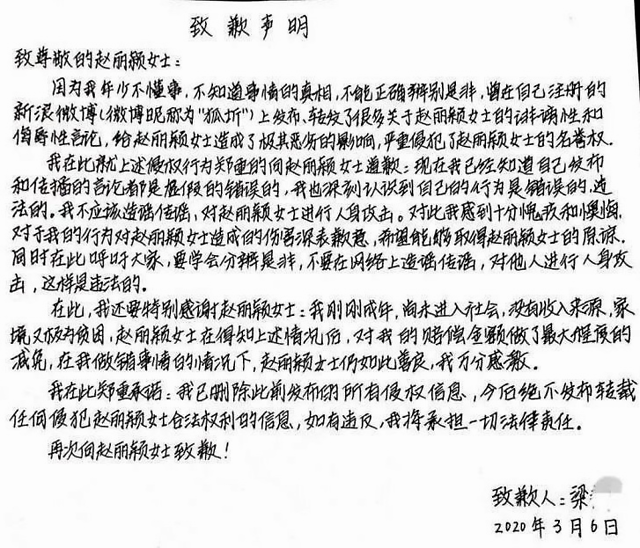 致歉声明
致尊敬的赵丽颖女士：
因为我年少不懂事，不知道事情的真相，不能正确辨别是非，曾在自己注册的
新浪微博（微博昵称为"狐圻"）上发布、转发了很多关于赵丽颖女士的诽谤性和
侮辱性言论，给赵丽颖女士造成了极其恶劣的影响，严重侵犯了赵丽颖女士的名誉权。
我在此就上述侵权行为郑重的向赵丽颖女士道歉：现在我已经知道自己发布
和传播的言论都是虚假的错误的，我也深刻认识到自己的行为是错误的，违
法的。我不应该造谣传谣，对赵丽颖女士进行人身攻击。对此我感到十分愧疚和懊悔，
对于我的行为对赵丽颖女士造成的伤害深表歉意，希望能够取得赵丽颖女士的原谅。
同时在此呼吁大家，要学会分辨是非，不要在网络上造谣传谣，对他人进行人身攻
击，这样是违法的。
在此，我还要特别感谢赵丽颖女士：我刚刚成年，尚未进入社会，没有收入来源，家
境又极为贫困，赵丽颖女士在得知上述情况后，对我的赔偿金额做了最大程度的
减免，在我做错事情的情况下，赵丽颖女士仍如此善良，我万分感激。
我在此郑重承诺：我已删除此前发布的所有侵权信息，今后绝不发布转载
任何侵犯赵丽颖女士合法权利的信息，如有违反，我将承担一切法律责任。
再次向赵丽颖女士致歉！
致歉人：梁
2020年3月6日